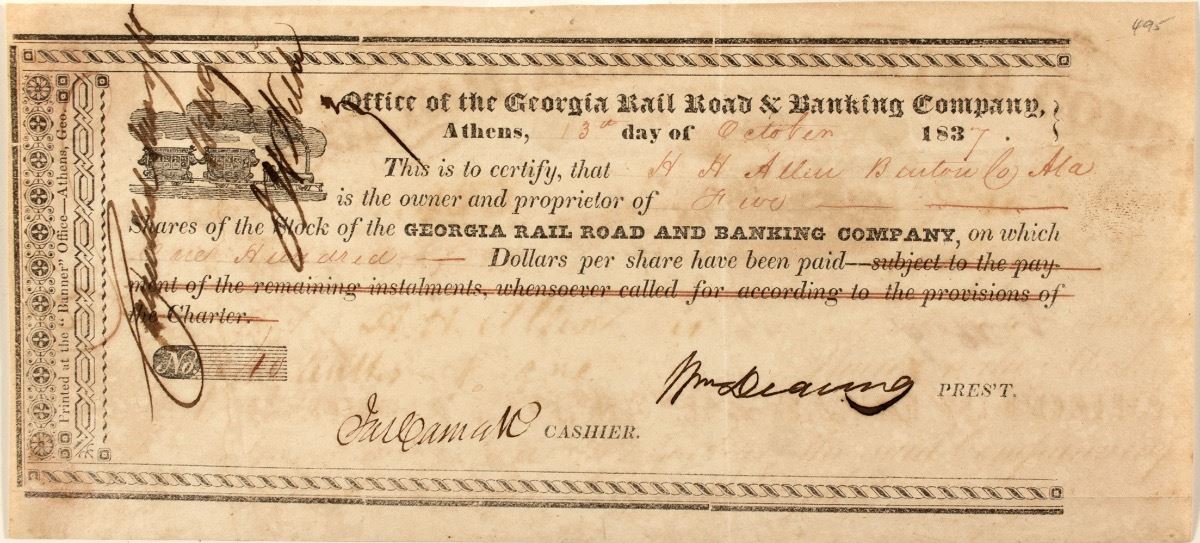 495
Office of the Georgia Rail Road & Banking Company,
Athens, 13th day of October 1837.
This is to certify, that H H Allen Benton Co, Ala
is the owner and proprietor of Five
Shares of the Stock of the GEORGIA RAIL ROAD AND BANKING COMPANY, on which
one Hundred Dollars per share have been paid—subject to the pay-
ment of the remaining instalments, whensoever called for according to the provisions of
the Charter.
No. 10
Wm Dearing PRES'T.
Jas Camak CASHIER.
Printed at the "Banner" Office—Athens, Geo.